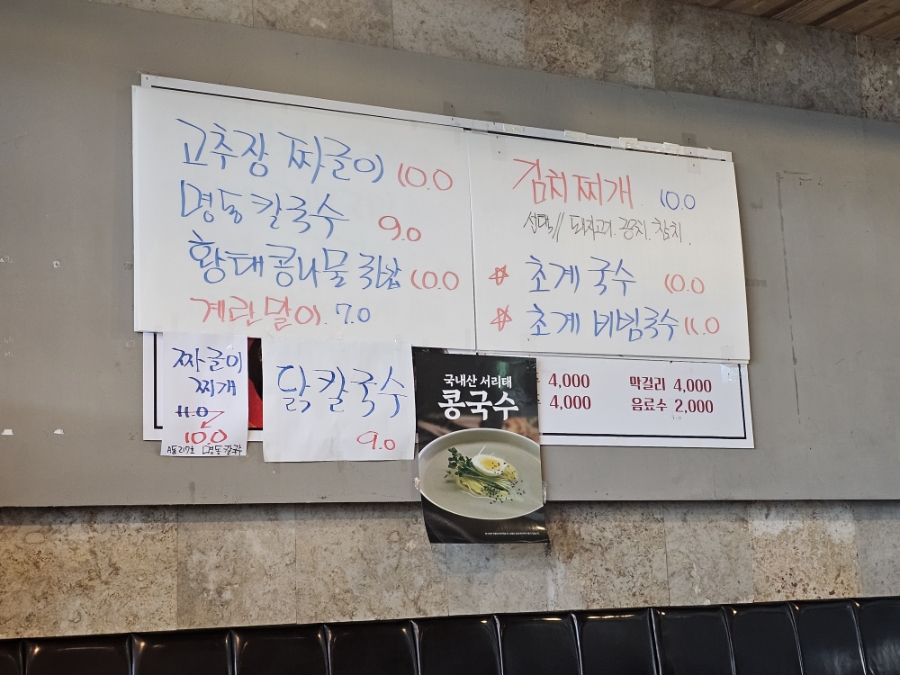 고추장 짜글이 10.0
명동칼국수 9.0
황태콩나물국밥 10.0
계란말이 7.0
김치찌개 10.0
선택// 돼지고기. 꽁치. 참치.
☆ 초계국수 10.0
☆ 초계비빔국수 11.0
짜글이
찌개
11.0
10.0
닭칼국수
9.0
국내산 서리태
콩국수
4,000 막걸리 4,000
4,000 음료수 2,000